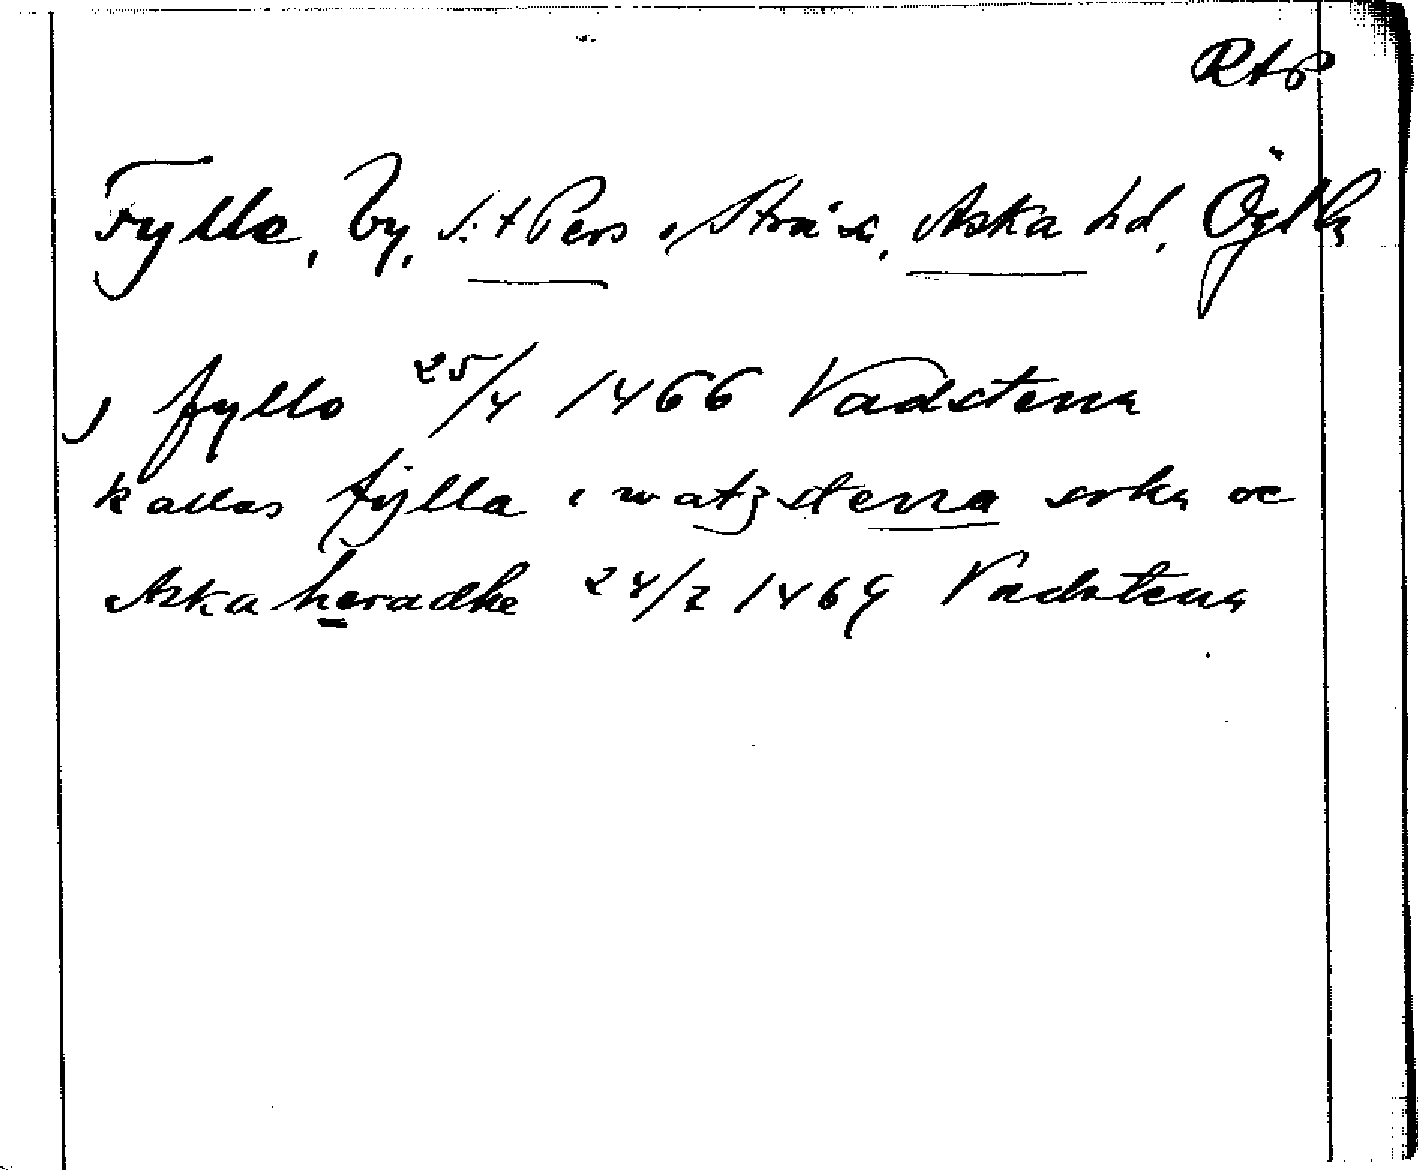 RAP
Fylla, by, S:t Pers s, Stra sn, Aska hd, Ögtld
J fyllo 25/4 1466 Vadstena
kallas fylla i watzstena sokn oc
Aska hæradhe 24/2 1469 Vadstena